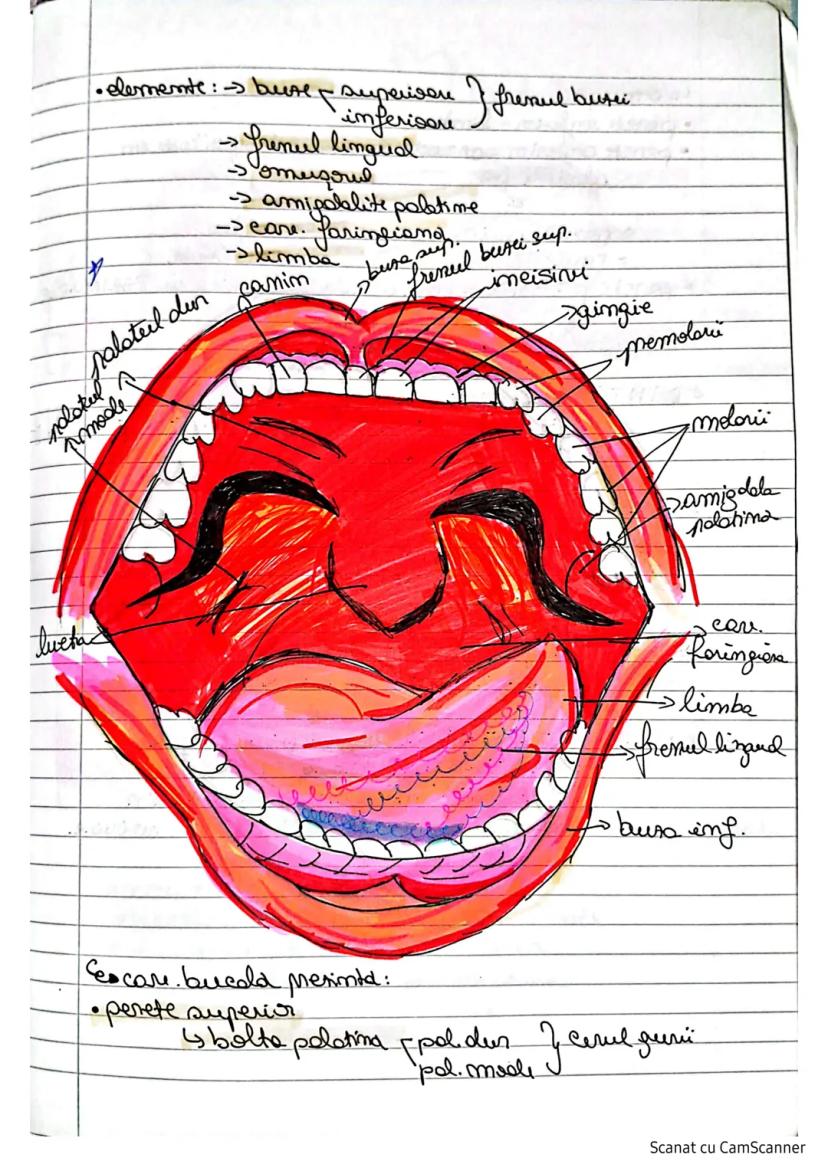 • elemente: → buze - superioare } frenul buzei
inferioare
→ frenul lingual
→ omușorul
→ amigdalite palatine
→ cav. faringiana
→ limba
buza sup.
frenul buzei sup.
canin
incisivi
gingie
palatul dur
premolarii
palatul moale
molarii
amigdala palatina
lueta
cav. faringiana
limba
frenul lingual
buza inf.
cav. bucala prezinta:
• perete superior
↳ bolta palatina - pal. dur } cerul gurii
pal. moale
Scanat cu CamScanner